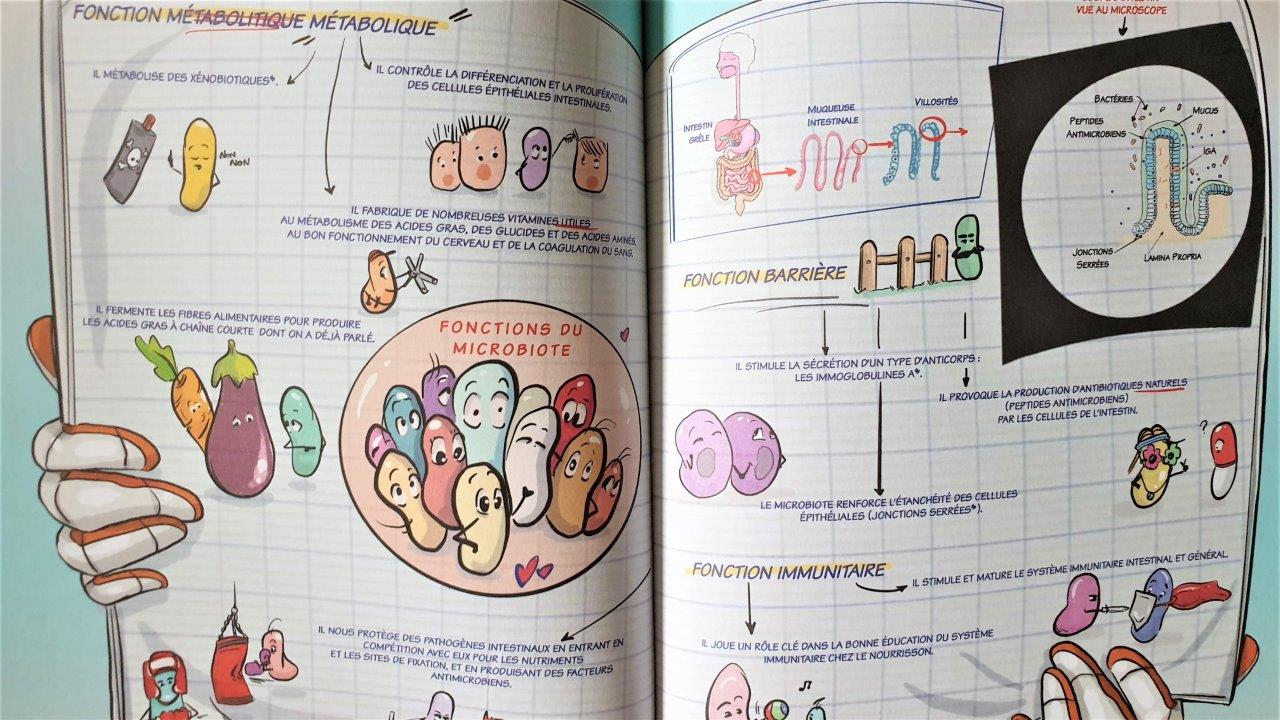 FONCTION MÉTABOLITIQUE MÉTABOLIQUE
IL MÉTABOLISE DES XÉNOBIOTIQUES*.
IL CONTRÔLE LA DIFFÉRENCIATION ET LA PROLIFÉRATION
DES CELLULES ÉPITHÉLIALES INTESTINALES.
NON
NON
IL FABRIQUE DE NOMBREUSES VITAMINES UTILES
AU MÉTABOLISME DES ACIDES GRAS, DES GLUCIDES ET DES ACIDES AMINÉS,
AU BON FONCTIONNEMENT DU CERVEAU ET DE LA COAGULATION DU SANG.
IL FERMENTE LES FIBRES ALIMENTAIRES POUR PRODUIRE
LES ACIDES GRAS À CHAÎNE COURTE DONT ON A DÉJÀ PARLÉ.
FONCTIONS DU
MICROBIOTE
IL NOUS PROTÈGE DES PATHOGÈNES INTESTINAUX EN ENTRANT EN
COMPÉTITION AVEC EUX POUR LES NUTRIMENTS
ET LES SITES DE FIXATION, ET EN PRODUISANT DES FACTEURS
ANTIMICROBIENS.
VUE AU MICROSCOPE
INTESTIN
GRÊLE
MUQUEUSE
INTESTINALE
VILLOSITÉS
BACTÉRIES
MUCUS
PEPTIDES
ANTIMICROBIENS
IGA
JONCTIONS
SERRÉES
LAMINA PROPRIA
FONCTION BARRIÈRE
IL STIMULE LA SÉCRÉTION D'UN TYPE D'ANTICORPS :
LES IMMOGLOBULINES A*.
IL PROVOQUE LA PRODUCTION D'ANTIBIOTIQUES NATURELS
(PEPTIDES ANTIMICROBIENS)
PAR LES CELLULES DE L'INTESTIN.
?
LE MICROBIOTE RENFORCE L'ÉTANCHÉITÉ DES CELLULES
ÉPITHÉLIALES (JONCTIONS SERRÉES*).
FONCTION IMMUNITAIRE
IL STIMULE ET MATURE LE SYSTÈME IMMUNITAIRE INTESTINAL ET GÉNÉRAL.
IL JOUE UN RÔLE CLÉ DANS LA BONNE ÉDUCATION DU SYSTÈME
IMMUNITAIRE CHEZ LE NOURRISSON.